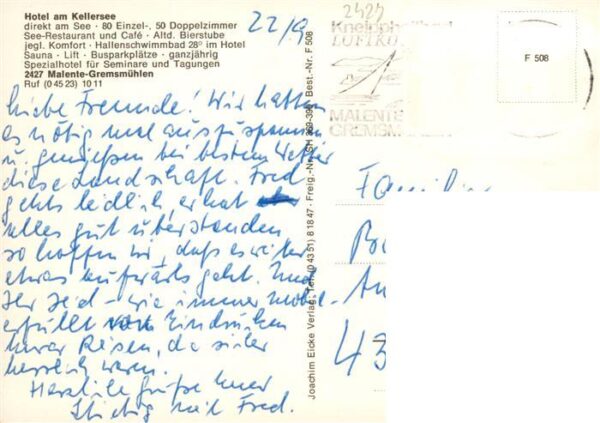 Hotel am Kellersee
direkt am See · 80 Einzel-, 50 Doppelzimmer
See-Restaurant und Café · Altd. Bierstube
jegl. Komfort · Hallenschwimmbad 28° im Hotel
Sauna · Lift · Busparkplätze · ganzjährig
Spezialhotel für Seminare und Tagungen
2427 Malente-Gremsmühlen
Ruf (0 45 23) 10 11
22/9
Liebe Freunde! Wir hatten
es nötig mal auszuspannen
u. genießen bei bestem Wetter
diese Landschaft. Fred
gehts leidlich er hat
alles gut überstanden
so hoffen wir, daß es weiter
etwas aufwärts geht. Und
Ihr seid - wie immer
erfüllt von Eindrücken
Reisen, die sicher
herrlich waren.
Herzliche Grüße Euer
mit Fred.
Joachim Eicke Verlag, Tel. (0 43 51) 8 18 47 · Freig.-Nr. SH Best.-Nr. F 508
2427
Kneippheilbad
LUFTKU
MALENTE
GREMSM
F 508
Famili
43